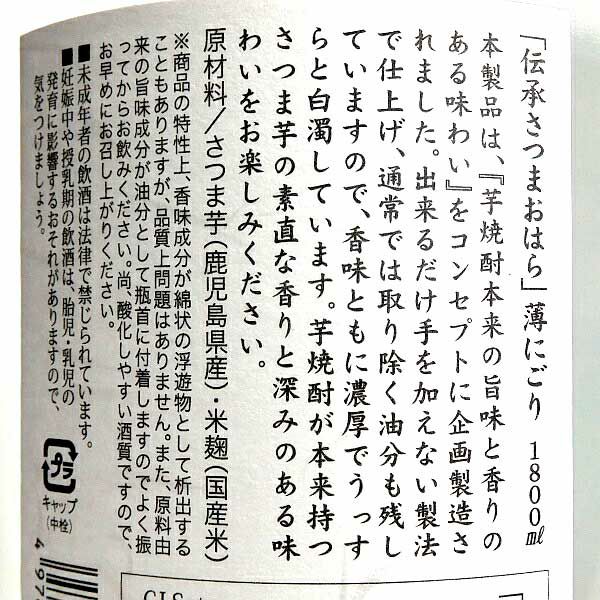 「伝承さつまおはら」薄にごり 1800㎖
本製品は、『芋焼酎本来の旨味と香りの
ある味わい』をコンセプトに企画製造さ
れました。出来るだけ手を加えない製法
で仕上げ、通常では取り除く油分も残し
ていますので、香味ともに濃厚でうっす
らと白濁しています。芋焼酎が本来持つ
さつま芋の素直な香りと深みのある味
わいをお楽しみください。
原材料/さつま芋(鹿児島県産)・米麹(国産米)
※商品の特性上、香味成分が綿状の浮遊物として析出する
こともありますが、品質上問題はありません。また、原料由
来の旨味成分が油分として瓶首に付着しますのでよく振
ってからお飲みください。尚、酸化しやすい酒質ですので、
お早めにお召し上がりください。
■未成年者の飲酒は法律で禁じられています。
■妊娠中や授乳期の飲酒は、胎児・乳児の
発育に影響するおそれがありますので、
気をつけましょう。
プラ
キャップ
(中栓)
4 97